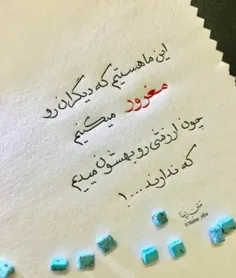 این ما هستیم که دیگران رو
مغرور میکنیم
چون ارزشی رو بهشون میدیم
که ندارند ....!